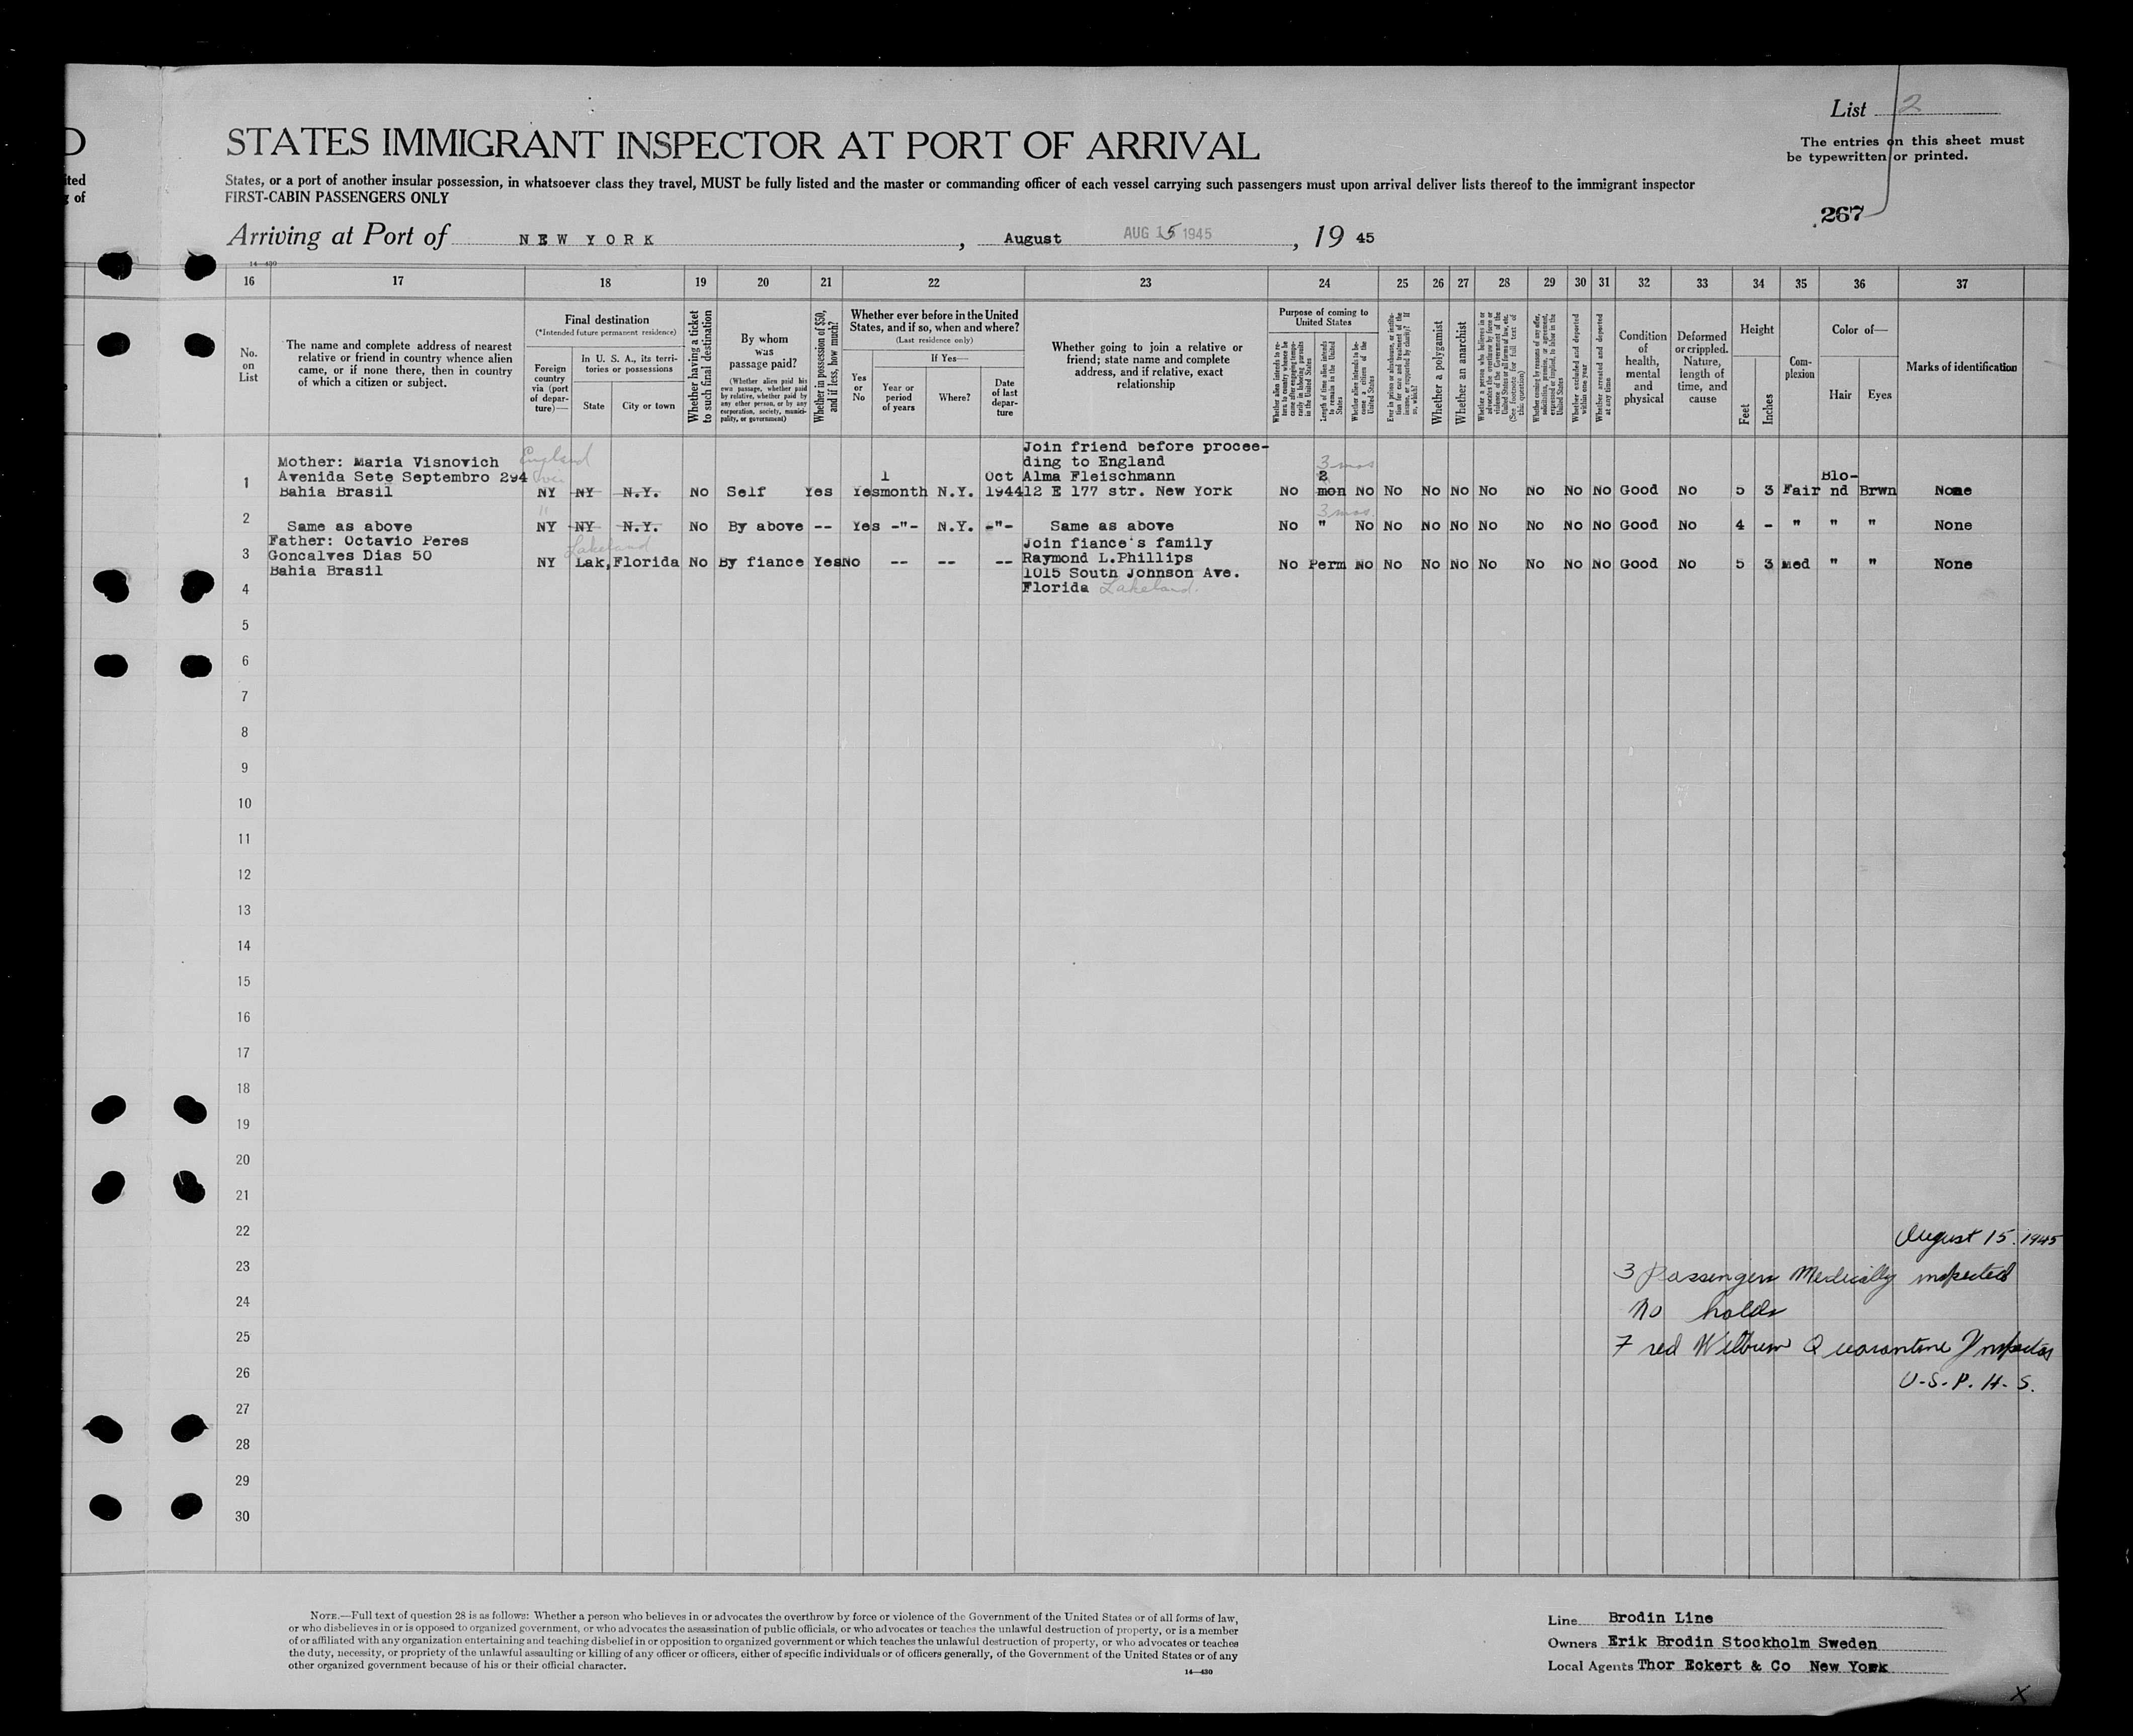 List 2
The entries on this sheet must
be typewritten or printed.
267
D
ited
g of
STATES IMMIGRANT INSPECTOR AT PORT OF ARRIVAL
States, or a port of another insular possession, in whatsoever class they travel, MUST be fully listed and the master or commanding officer of each vessel carrying such passengers must upon arrival deliver lists thereof to the immigrant inspector
FIRST-CABIN PASSENGERS ONLY
Arriving at Port of NEW YORK, August AUG 15 1945, 19 45
14-430
16 17 18 19 20 21 22 23 24 25 26 27 28 29 30 31 32 33 34 35 36 37
No. on List
The name and complete address of nearest relative or friend in country whence alien came, or if none there, then in country of which a citizen or subject.
Final destination
(*Intended future permanent residence)
Foreign country via (port of departure)—
In U. S. A., its territories or possessions
State
City or town
Whether having a ticket to such final destination
By whom was passage paid?
(Whether alien paid his own passage, whether paid by relative, whether paid by any other person, or by any corporation, society, municipality, or government)
Whether in possession of $50, and if less, how much?
Whether ever before in the United States, and if so, when and where?
(Last residence only)
Yes or No
If Yes—
Year or period of years
Where?
Date of last departure
Whether going to join a relative or friend; state name and complete address, and if relative, exact relationship
Purpose of coming to United States
Whether alien intends to return to country whence he came after engaging temporarily in laboring pursuits in the United States
Length of time alien intends to remain in the United States
Whether alien intends to become a citizen of the United States
Ever in prison or almshouse, or institution for care and treatment of the insane, or supported by charity? If so, which?
Whether a polygamist
Whether an anarchist
Whether a person who believes in or advocates the overthrow by force or violence of the Government of the United States or of all forms of law, etc. (See footnote for full text of this question)
Whether coming by reasons of any offer, solicitation, promise, or agreement, expressed or implied, to labor in the United States
Whether excluded and deported within one year
Whether arrested and deported at any time
Condition of health, mental and physical
Deformed or crippled. Nature, length of time, and cause
Height
Feet
Inches
Complexion
Color of—
Hair
Eyes
Marks of identification
Join friend before procee-
Mother: Maria Visnovich England ding to England 3 mos
1 Avenida Sete Septembro 294 1 Oct Alma Fleischmann 2 Blo-
Bahia Brasil NY NY N.Y. No Self Yes Yes month N.Y. 1944 12 E 177 str. New York No mon No No No No No No No No Good No 5 3 Fair nd Brwn None
" 3 mos.
2 Same as above NY NY N.Y. No By above -- Yes -"- N.Y. -"- Same as above No " No No No No No No No No Good No 4 - " " " None
Father: Octavio Peres Lakeland Join fiance's family
3 Goncalves Dias 50 NY Lak, Florida No By fiance Yes No -- -- -- Raymond L.Phillips No Perm No No No No No No No No Good No 5 3 Med " " None
Bahia Brasil 1015 South Johnson Ave.
4 Florida Lakeland.
5
6
7
8
9
10
11
12
13
14
15
16
17
18
19
20
21
22
August 15. 1945
23
3 Passengers Medically inspected
24
No holds
25
Fred Wilburn Quarantine Inspector
26
U.S.P.H.S.
27
28
29
30
NOTE.—Full text of question 28 is as follows: Whether a person who believes in or advocates the overthrow by force or violence of the Government of the United States or of all forms of law,
or who disbelieves in or is opposed to organized government, or who advocates the assassination of public officials, or who advocates or teaches the unlawful destruction of property, or is a member
of or affiliated with any organization entertaining and teaching disbelief in or opposition to organized government or which teaches the unlawful destruction of property, or who advocates or teaches
the duty, necessity, or propriety of the unlawful assaulting or killing of any officer or officers, either of specific individuals or of officers generally, of the Government of the United States or of any
other organized government because of his or their official character.
14-430
Line Brodin Line
Owners Erik Brodin Stockholm Sweden
Local Agents Thor Eckert & Co New York
X